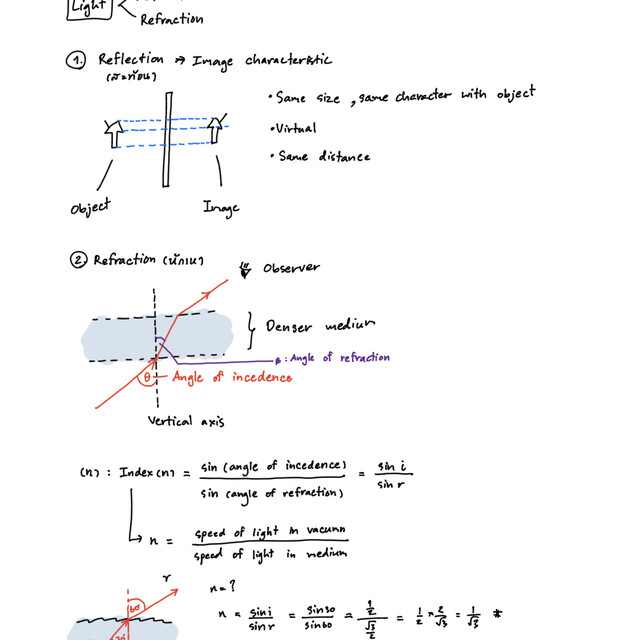 Light
Refraction
1. Reflection → Image characteristic
(สะท้อน)
• Same size , same character with object
• Virtual
• Same distance
Object
Image
2. Refraction (หักเห)
Observer
Denser medium
β : Angle of refraction
θ
Angle of incedence
Vertical axis
(n) : Index (n) = sin (angle of incedence) / sin (angle of refraction) = sin i / sin r
n = speed of light in vacuum / speed of light in medium
r
60
30
n = ?
n = sin i / sin r = sin 30 / sin 60 = 1/2 / √3/2 = 1/2 × 2/√3 = 1/√3 *